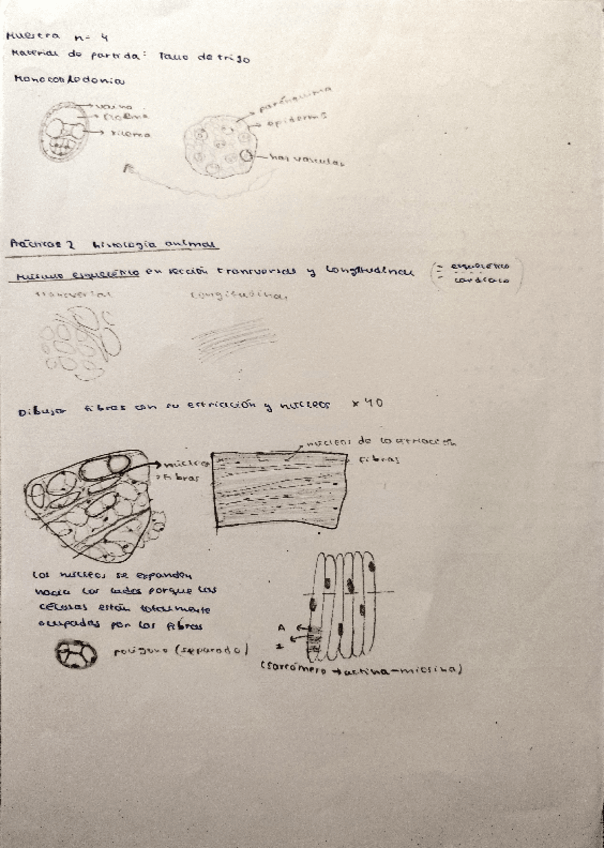 Muestra n- 4
Material de partida: Tallo de trigo
Monocotiledonia
vaina
floema
xilema
parénquima
epidermis
haz vascular
Práctica 2 histología animal
Músculo esquelético en sección transversal y longitudinal
esquelético
cardíaco
transversal
longitudinal
Dibujar fibras con su estriación y núcleos x40
núcleo
fibras
núcleos de la
fibras
Los núcleos se expanden
hacia los lados porque las
células están totalmente
ocupadas por las fibras
polígono (separado)
A
I
(sarcómero → actina-miosina)